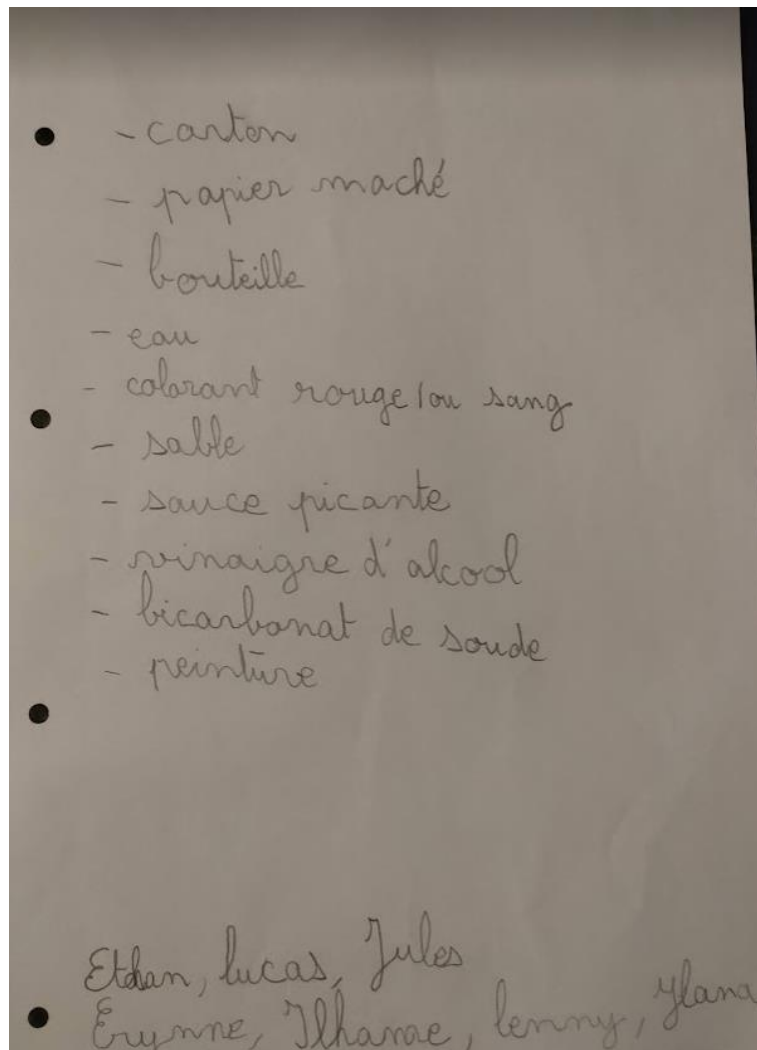 - carton
- papier maché
- bouteille
- eau
- colorant rouge/ou sang
- sable
- sauce picante
- vinaigre d'alcool
- bicarbonat de soude
- peinture
Ethan, lucas, Jules
Erynne, Ilhame, lenny, Ylana